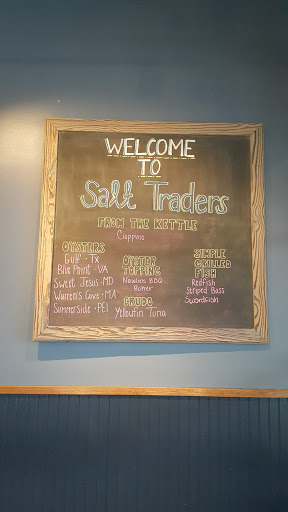 WELCOME
TO
Salt Traders
FROM THE KETTLE
Cioppino
OYSTERS
Gulf - TX
Blue Point - VA
Sweet Jesus - MD
Warren's Cove - MA
Summerside - PEI
OYSTER
TOPPING
Nawlins BBQ
Butter
CRUDO
Yellowfin Tuna
SIMPLE
GRILLED
FISH
Redfish
Striped Bass
Swordfish